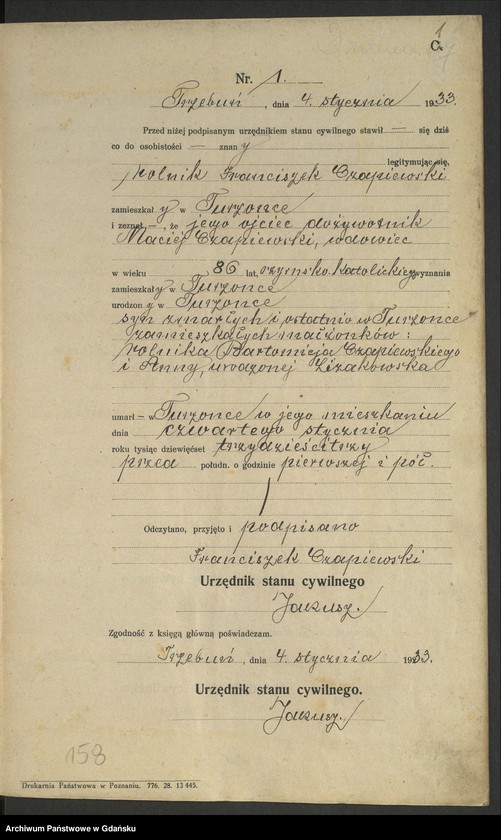 1
C.
Nr. 1.
Trzebuń, dnia 4. stycznia 1933.
Przed niżej podpisanym urzędnikiem stanu cywilnego stawił — się dziś
co do osobistości — znany
legitymując się,
rolnik Franciszek Czapiewski
zamieszkały w Turzonce
i zeznał —, że jego ojciec dożywotnik
Maciej Czapiewski, wdowiec
w wieku 86 lat, rzymsko. katolickiego wyznania
zamieszkały w Turzonce
urodzony w Turzonce
syn zmarłych i ostatnio w Turzonce
zamieszkałych małżonków:
rolnika Bartłomieja Czapiewskiego
i Anny, urodzonej Żizakowska
umarł — w Turzonce w jego mieszkaniu
dnia czwartego stycznia
roku tysiąc dziewięćset trzydzieści trzy
przed połudn. o godzinie pierwszej i pół.
Odczytano, przyjęto i podpisano
Franciszek Czapiewski
Urzędnik stanu cywilnego
Jakusz.
Zgodność z księgą główną poświadczam.
Trzebuń, dnia 4. stycznia 1933.
Urzędnik stanu cywilnego.
Jakusz.
158
Drukarnia Państwowa w Poznaniu. 776. 28. 13 445.
Archiwum Państwowe w Gdańsku